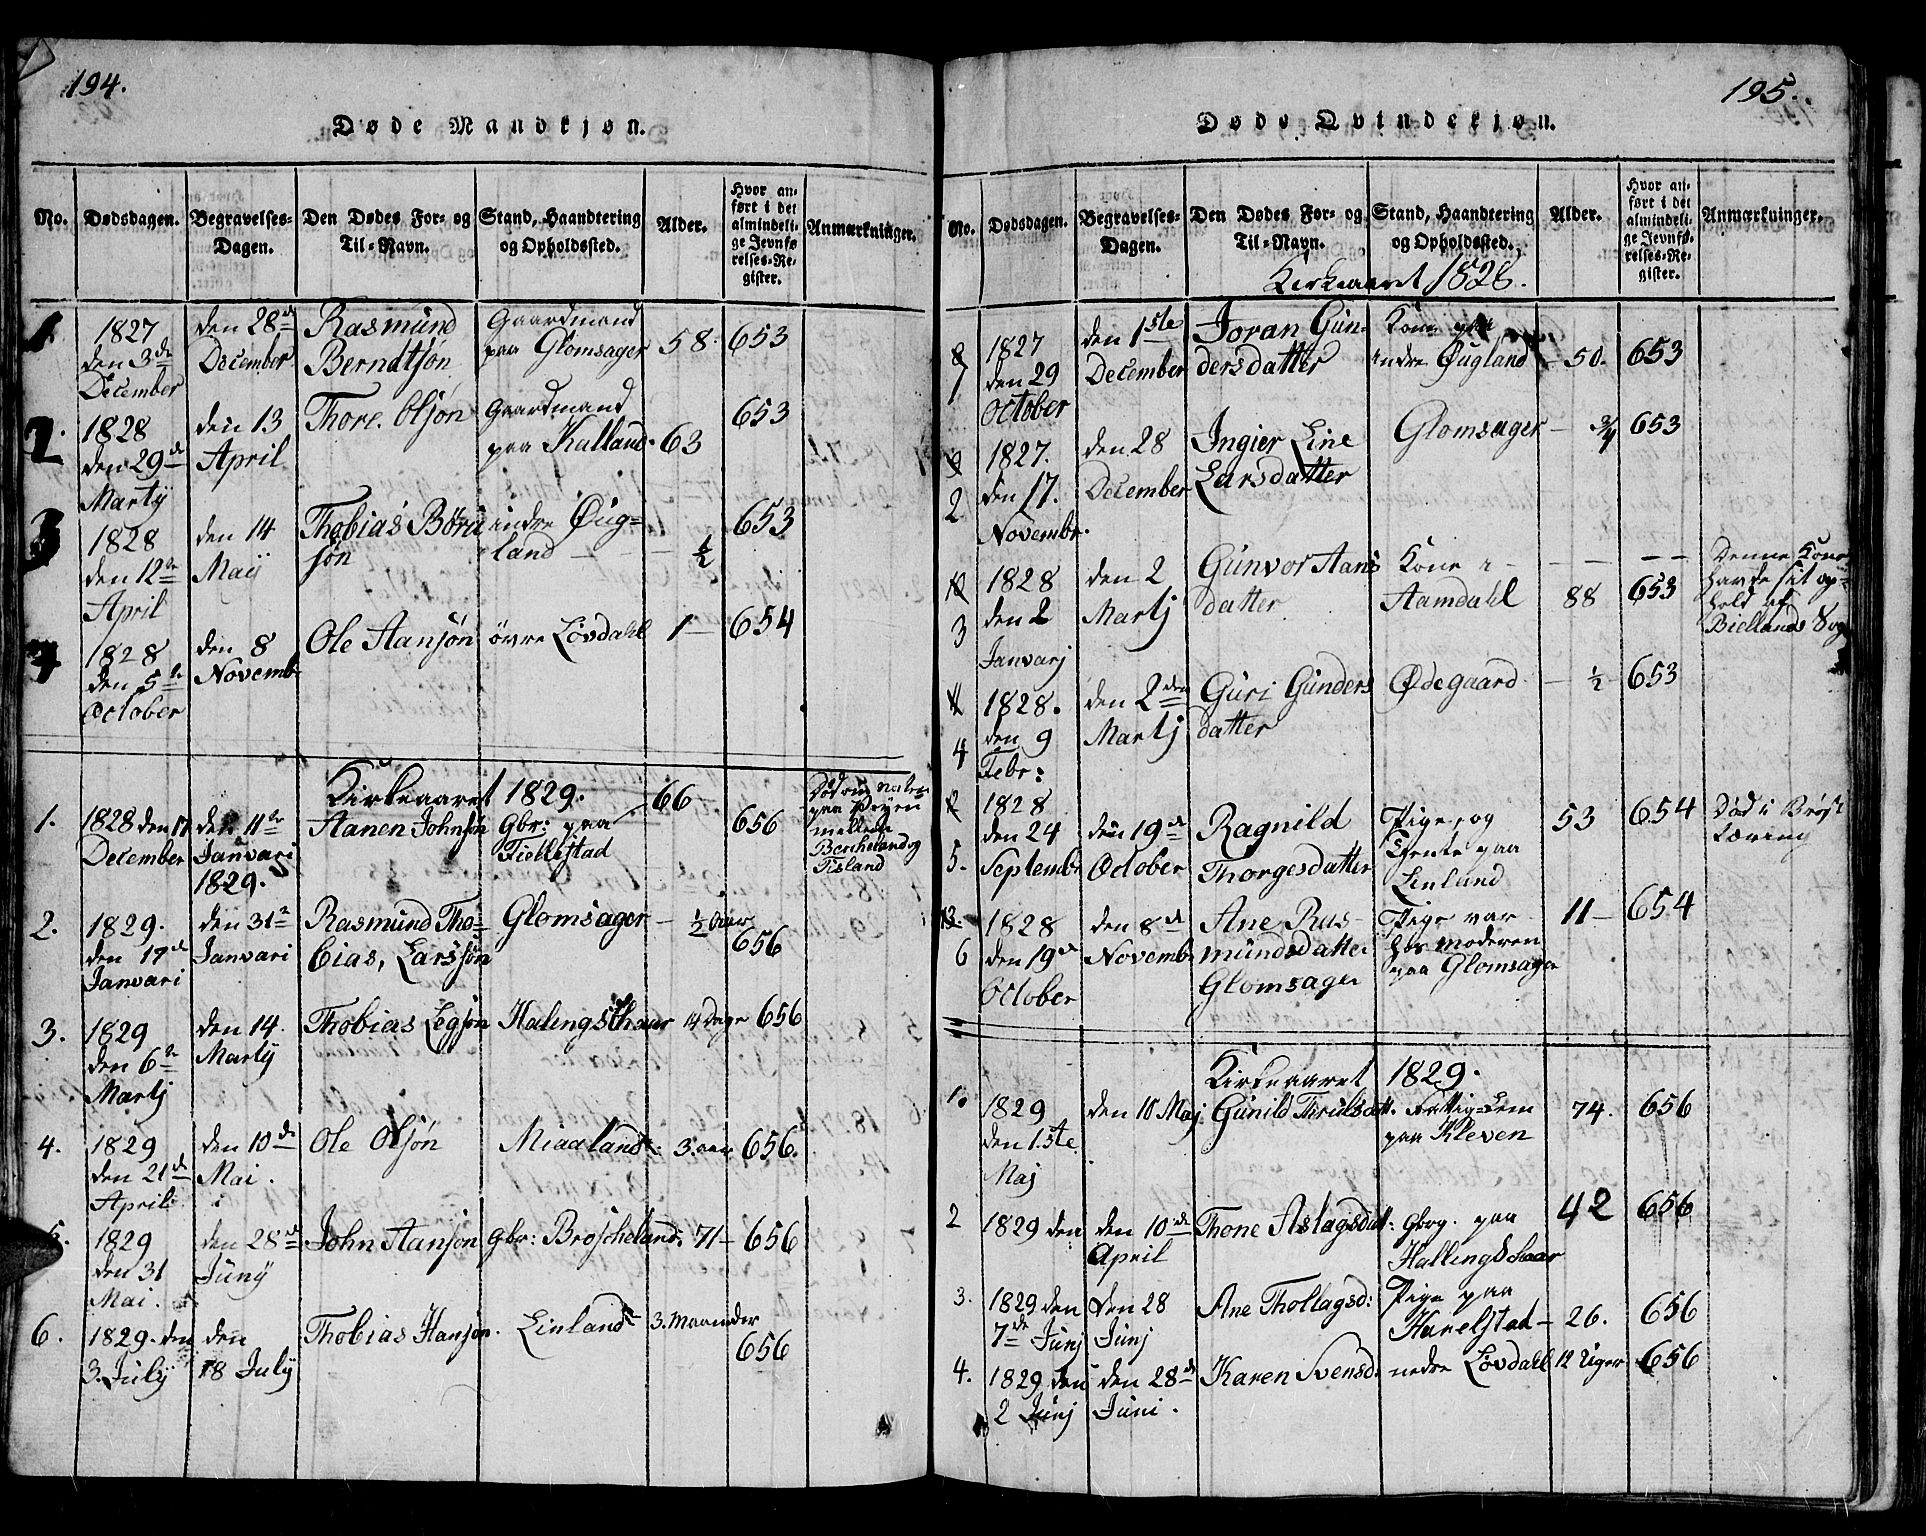 194.
Døde Mandkjøn.
No. Dødsdagen. Begravelses-Dagen. Den Dødes For- og Til-Navn. Stand, Haandtering og Opholdssted. Alder. Hvor anført i det almindelige Jevnførelses-Register. Anmærkninger.
1 1827 den 3de December den 28de December Rasmund Berndtsøn Gaardmand paa Glomsager 58. 653
2. 1828 den 29de Martÿ den 13 April Thore Olsøn Gaardmand paa Kalland 63 653
3 1828 den 12te April den 14 Maÿ Thobias Børu søn indre Øugland ½ 653
4 1828 den 5te October den 8 Novemb Ole Aansøn övre Lövdahl 1 654
Kirkeaaret 1829.
1. 1828 den 17 December den 11te Janvari 1829. Aanen Johnsøn Gbr: paa Fiellestad 66 656 Död paa mellem og Tisland
2. 1829. den 17de Janvari den 31te Janvari Rasmund Thobias, Larssøn Glomsager ½ Aar 656
3. 1829 den 6te Martj den 14. Martÿ Thobias Legsøn Halingsthaur 14 Dage 656
4. 1829 den 21de April den 10de Mai. Ole Olsøn Miaaland 3. aar 656.
5. 1829 den 31 Mai. den 28de Junÿ John Aansøn gbr: Broscheland. 71 656
6. 1829. den 3. July den 18 July Thobias Hansøn. Einland 3. Maaneder 656
195.
Døde Qvindekjøn.
No. Dødsdagen. Begravelses-Dagen. Den Dødes For- og Til-Navn. Stand, Haandtering og Opholdssted. Alder. Hvor anført i det almindelige Jevnførelses-Register. Anmærkninger.
Kirkeaaret 1828.
8 1 1827 den 29 October den 1ste December Joran Gundersdatter Kone paa indre Øugland 50. 653
9 2 1827. den 17. Novembr. den 28 December Ingier Line Larsdatter Glomsager ¾ 653
10 3 1828 den 2 Janvarj den 2 Martj Gunvor Aansdatter Kone Aamdahl 88 653 Denne Kone havde sit ophold af Biellands Sogn
11 4 1828. den 9 Febr: den 2den Martj Guri Gundersdatter Ødegaard ½ 653
12 5. 1828 den 24 Septembr den 19de October Ragnild Thorgesdatter Pige, og Tjente paa Einland 53 654 Död i Bröst
13. 6 1828 den 19de October den 8de Novemb Ane Rasmundsdatter Glomsager Pige var hos moderen paa Glomsager 11 654
Kirkeaaret 1829.
1. 1829 den 1.ste Maj den 10 Maj: Gunild Thrulsdatt. Fattig=Lem paa Kleven 74. 656
2 1829 den den 10de April Thone Aslagsdatt: Gbrg. paa Hallingsdaar 42 656
3. 1829 den 7de Junj Den 28 Junj Ane Thollagsd: Pige paa Harelstad 26. 656
4. 1829 den 2 Junj den 28de Juni. Karen Svensd: nedre Lövdahl 12 Uger 656